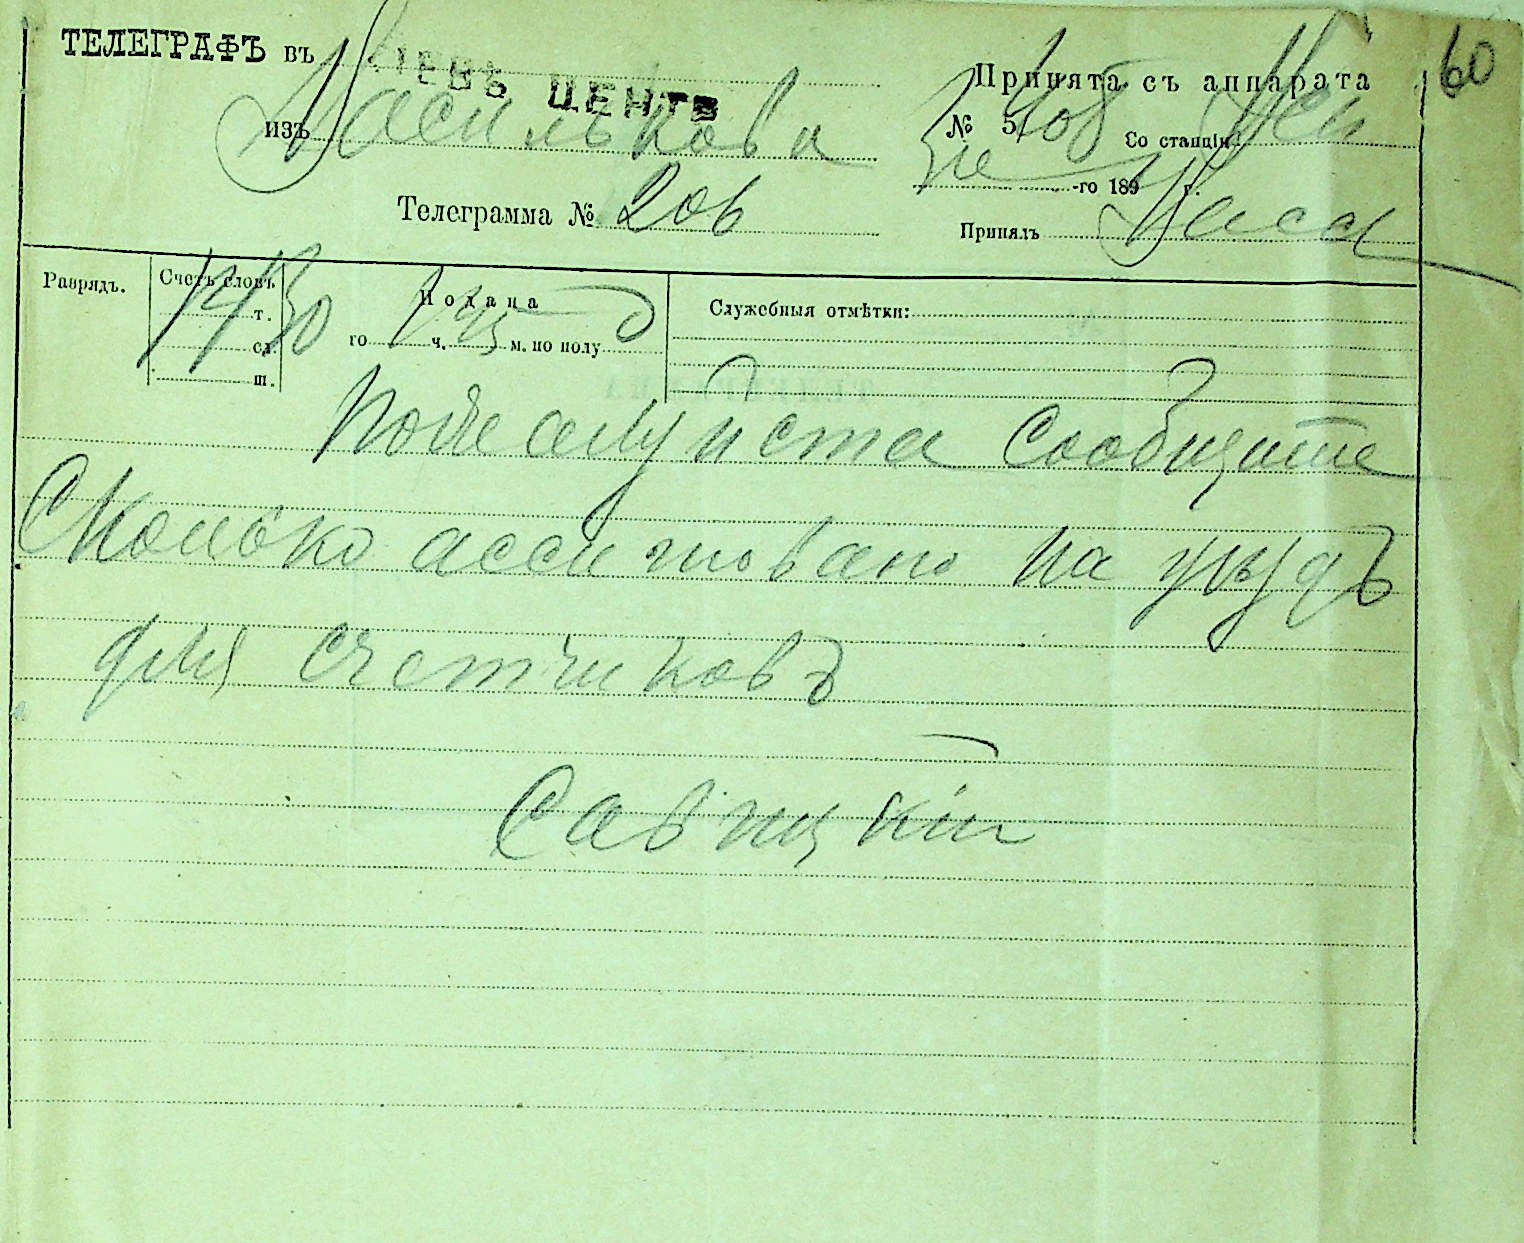 60
ТЕЛЕГРАФЪ въ КІЕВЪ ЦЕНТР
изъ Василькова
Телеграмма № 206
Принята съ аппарата
№ 5 Со станціи
-го 189 г.
Принялъ
Разрядъ. Счетъ словъ Подана Служебныя отмѣтки:
14 т. сл. ш. 30 го 1 ч. 45 м. по полу д
Пожалуиста сообщите
Сколько ассигновано на уѣздъ
для счетчиковъ
Савицкій